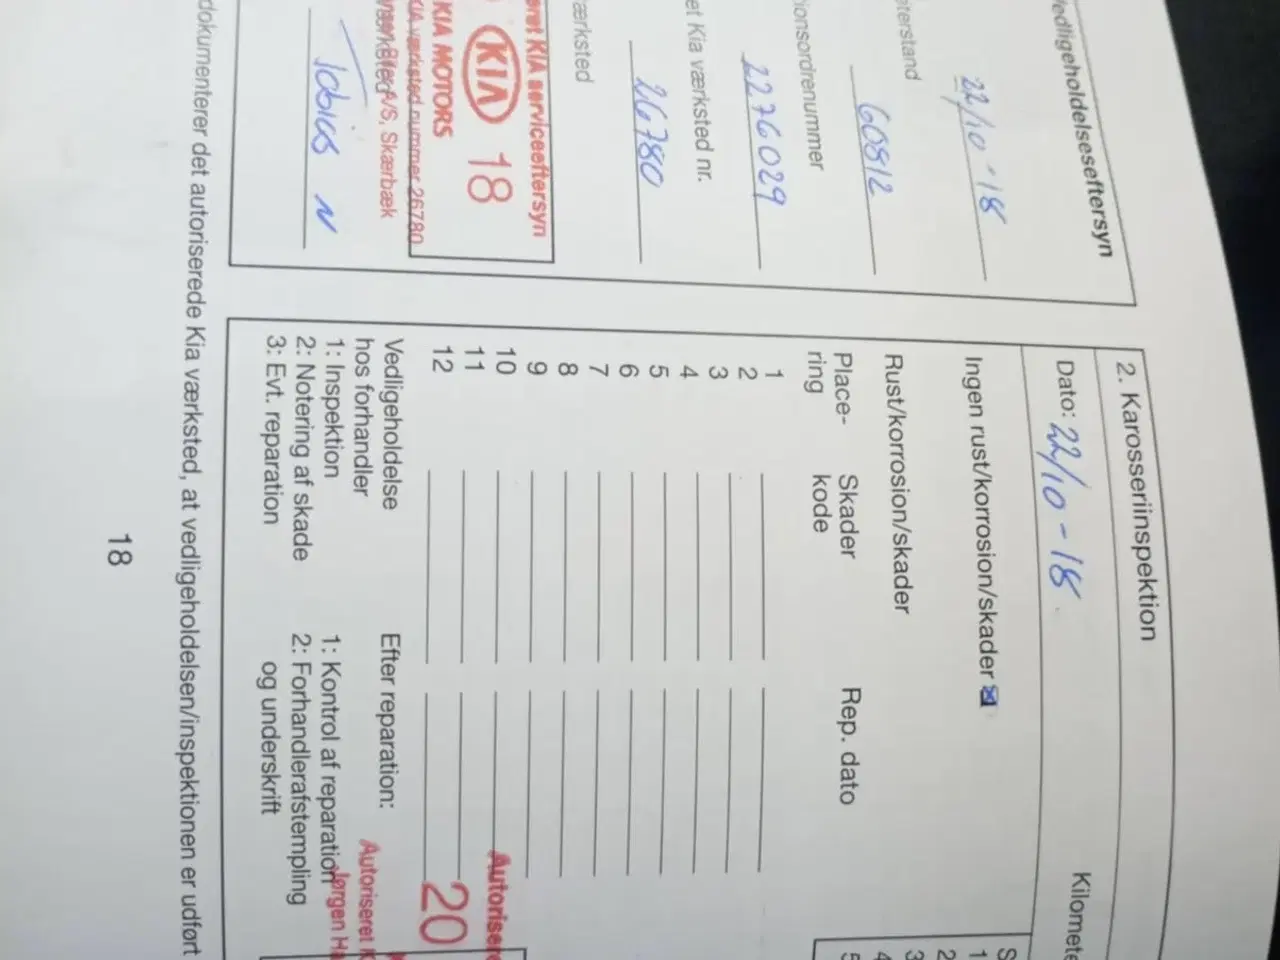 edligeholdelseseftersyn
22/10-18
eterstand
60812
ionsordrenummer
2276029
et Kia værksted nr.
26780
ærksted
eret KIA serviceeftersyn
KIA 18
KIA MOTORS
KIA værksted nummer 26780
A/S, Skærbæk
Tobias N
2. Karosseriinspektion
Dato: 22/10-18
Kilomete
Ingen rust/korrosion/skader
Rust/korrosion/skader
Place-
ring
Skader
kode
Rep. dato
1
2
3
4
5
6
7
8
9
10
11
12
Vedligeholdelse
hos forhandler
1: Inspektion
2: Notering af skade
3: Evt. reparation
Efter reparation:
1: Kontrol af reparation
2: Forhandlerafstempling
og underskrift
Autoriser
20
Autoriseret K
Jørgen Ha
S
1
2
3
4
5
dokumenterer det autoriserede Kia værksted, at vedligeholdelsen/inspektionen er udført
18